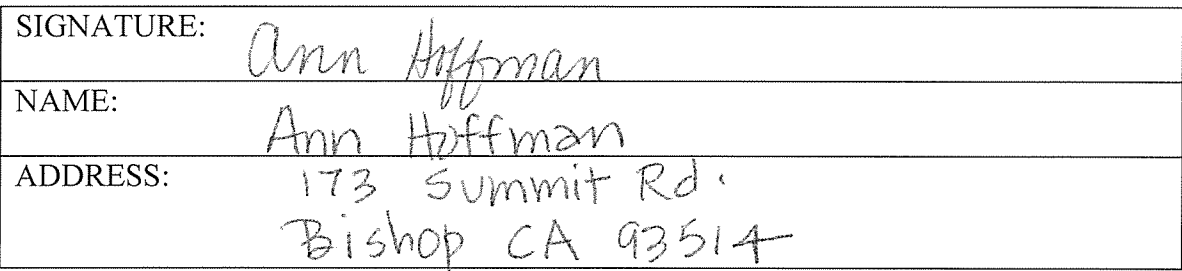 SIGNATURE: Ann Hoffman
NAME: Ann Hoffman
ADDRESS: 173 Summit Rd.
Bishop CA 93514